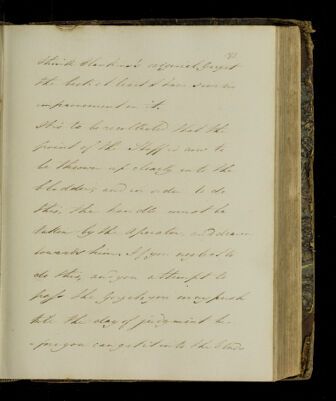 think Hawkins's original Gorget
the best at least I have seen no
improvement in it.
It is to be recollected that the
point of the Staff is now to
be thrown up clearly into the
bladder, and in order to do
this, the handle must be
taken by the operator and drawn
towards him. If you neglect to
do this, and you attempt to
pass the Gorget, you may push
till the day of judgment be-
-fore you can get it into the blad-